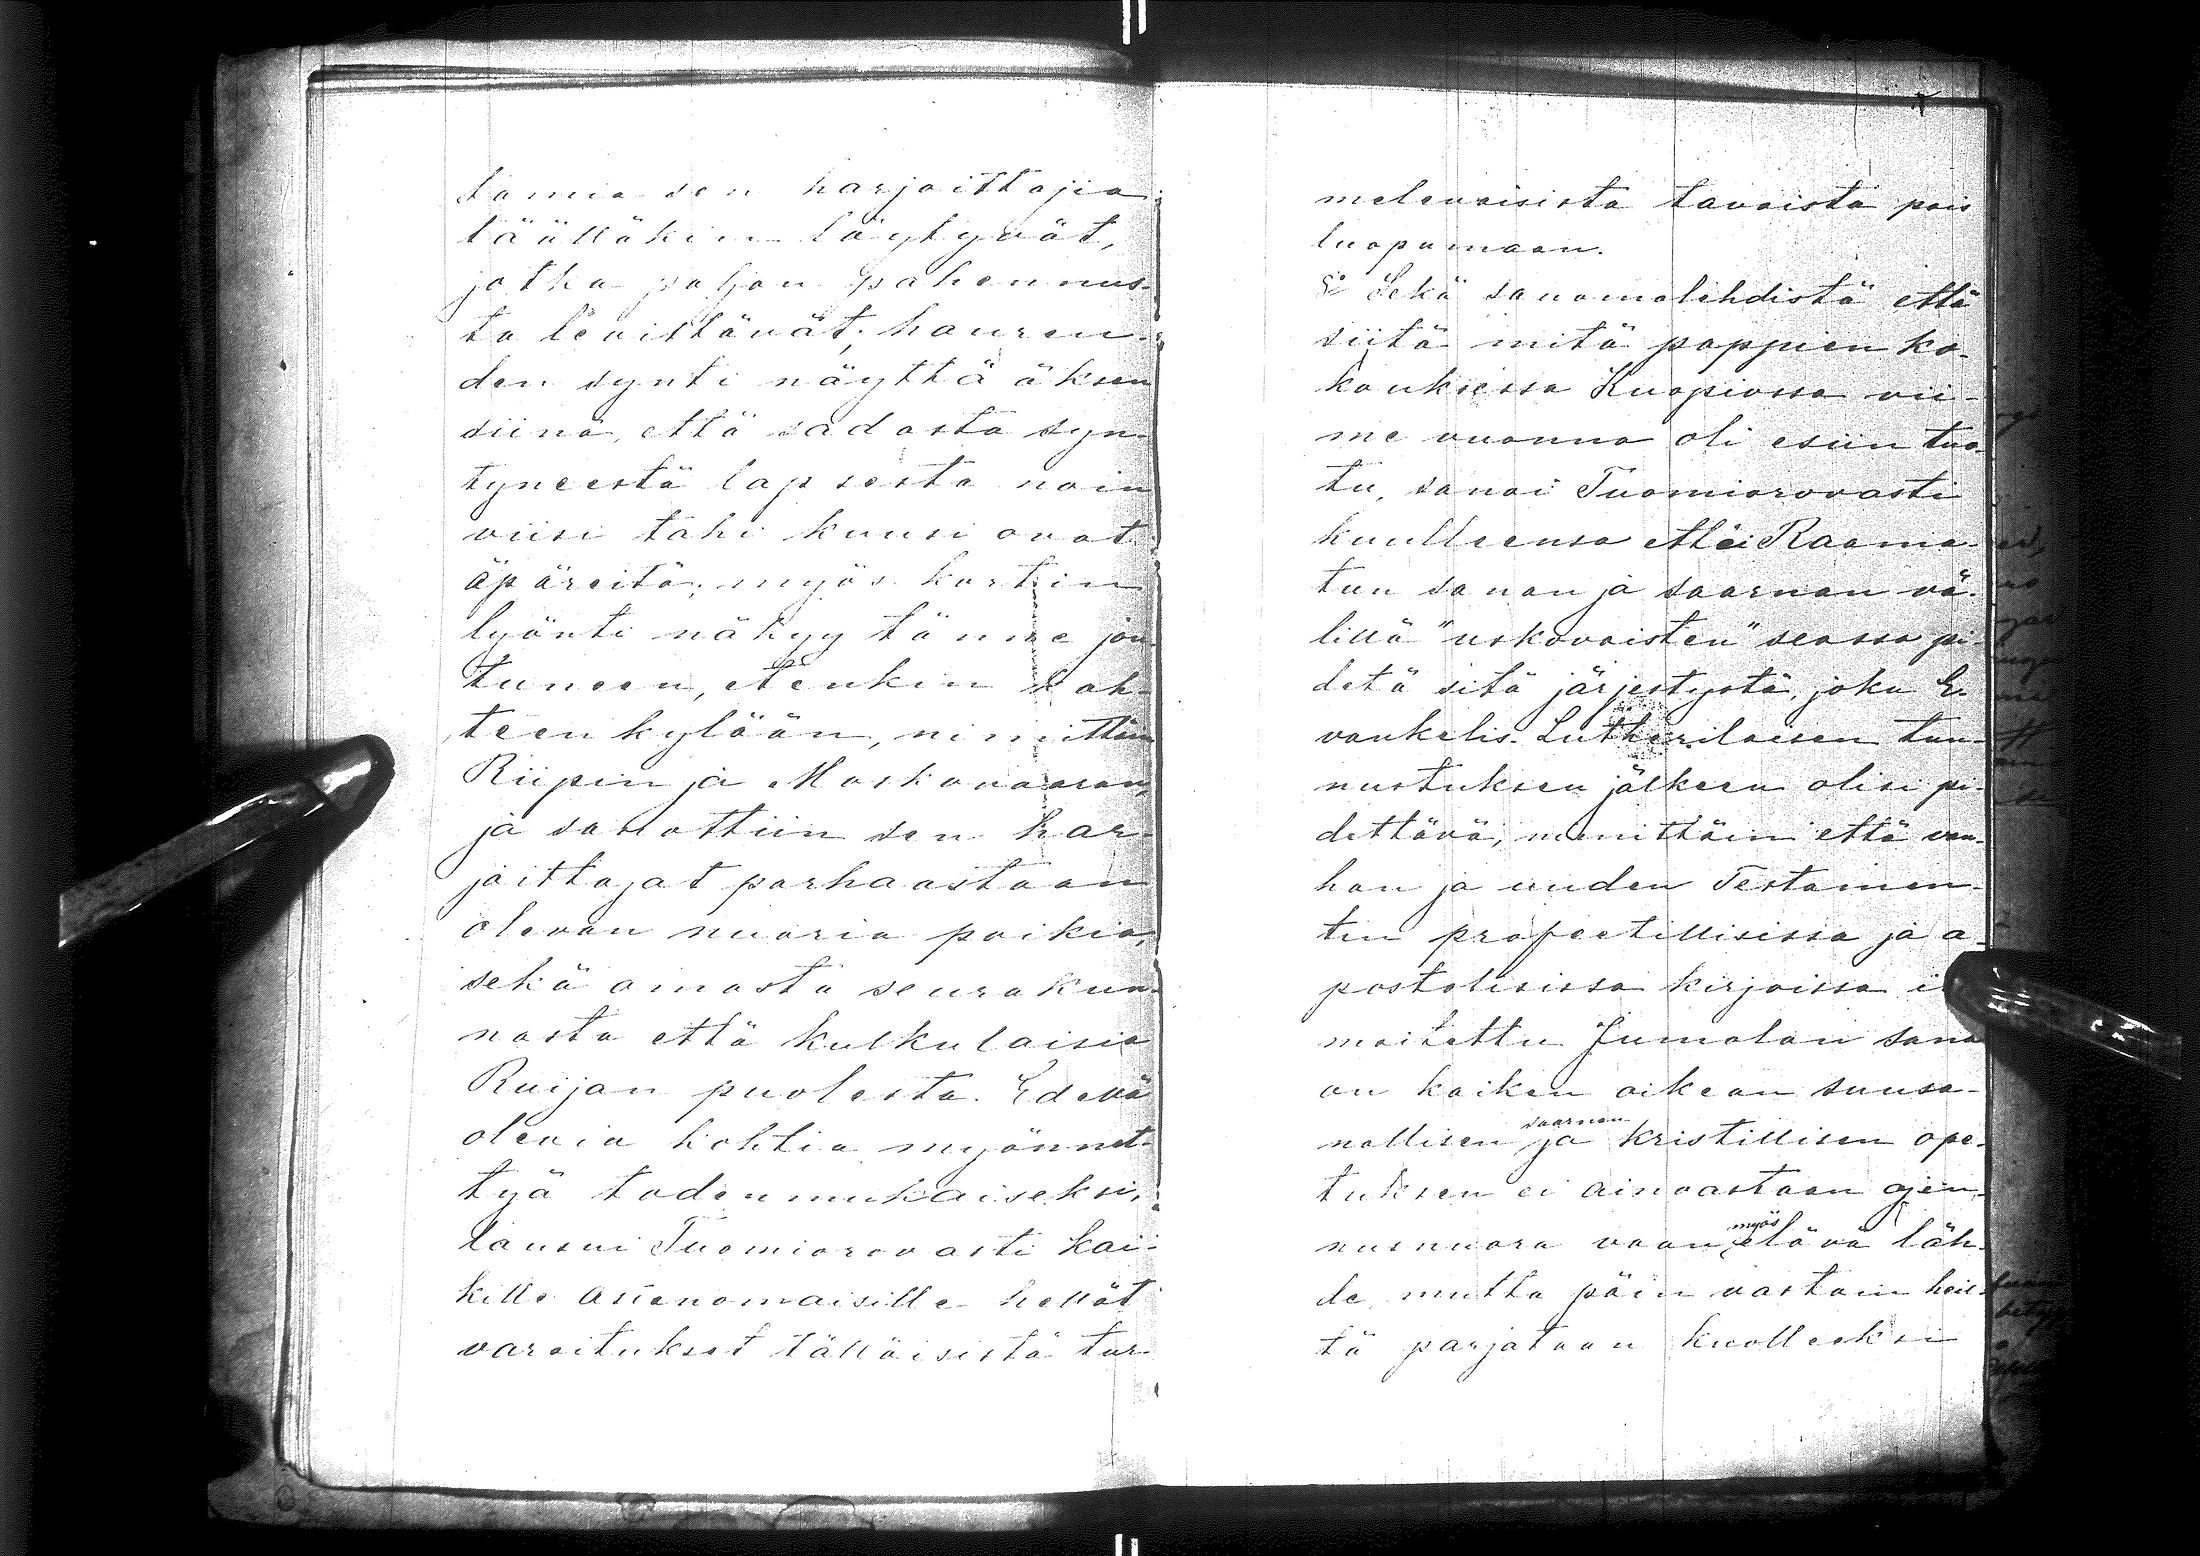 tamia sen harjoittajia
täälläkin löytyvät,
jotka paljon pahennus-
ta levittävät; hauren-
den synti näyttääksen
siinä, että sadasta syn-
tyneestä lapsesta noin
viisi tahi kuusi ovat
äpäreitä; myös kortin
lyönti näkyy tänne jou-
tuneen, etenkin Lah-
teen kylään, nimittäin
Riipin ja Moskovaaran,
ja sanottiin sen har-
joittajat parhaastaan
olevan nuoria poikia,
sekä omasta seurakun-
nasta että kulkulaisia
Ruijan puolesta. Edellä
olevia kohtia myönnet-
tyä todenmukaiseksi,
lausui Tuomiorovasti kai-
kille asianomaisille hellät
varoitukset tälläisistä tur-
melevaisista tavoista pois
luopumaan.
Sekä sanomalehdistä että
siitä mitä pappien ko-
kouksessa Kuopiossa vii-
me vuonna oli esiin tuo-
tu, sanoi Tuomiorovasti
kuulleensa ettei Raama-
tun sanan ja saarnan vä-
lillä "uskovaisten" seassa pi-
detä sitä järjestystä, joka E-
vankelis. Lutherilaisen tun-
nustuksen jälkeen olisi pi-
dettävä, nimittäin että van-
han ja uuden Testamen-
tin profeetillisissa ja a-
postolisissa kirjoissa
moitettu Jumalan sana
on kaiken oikean suusa-
nallisen saarnan ja kristillisen ope-
tuksen ei ainoastaan ojen-
nusnuora vaan myös elävä läh-
de, mutta päin vastoin heil-
tä parjataan kuolleeksi